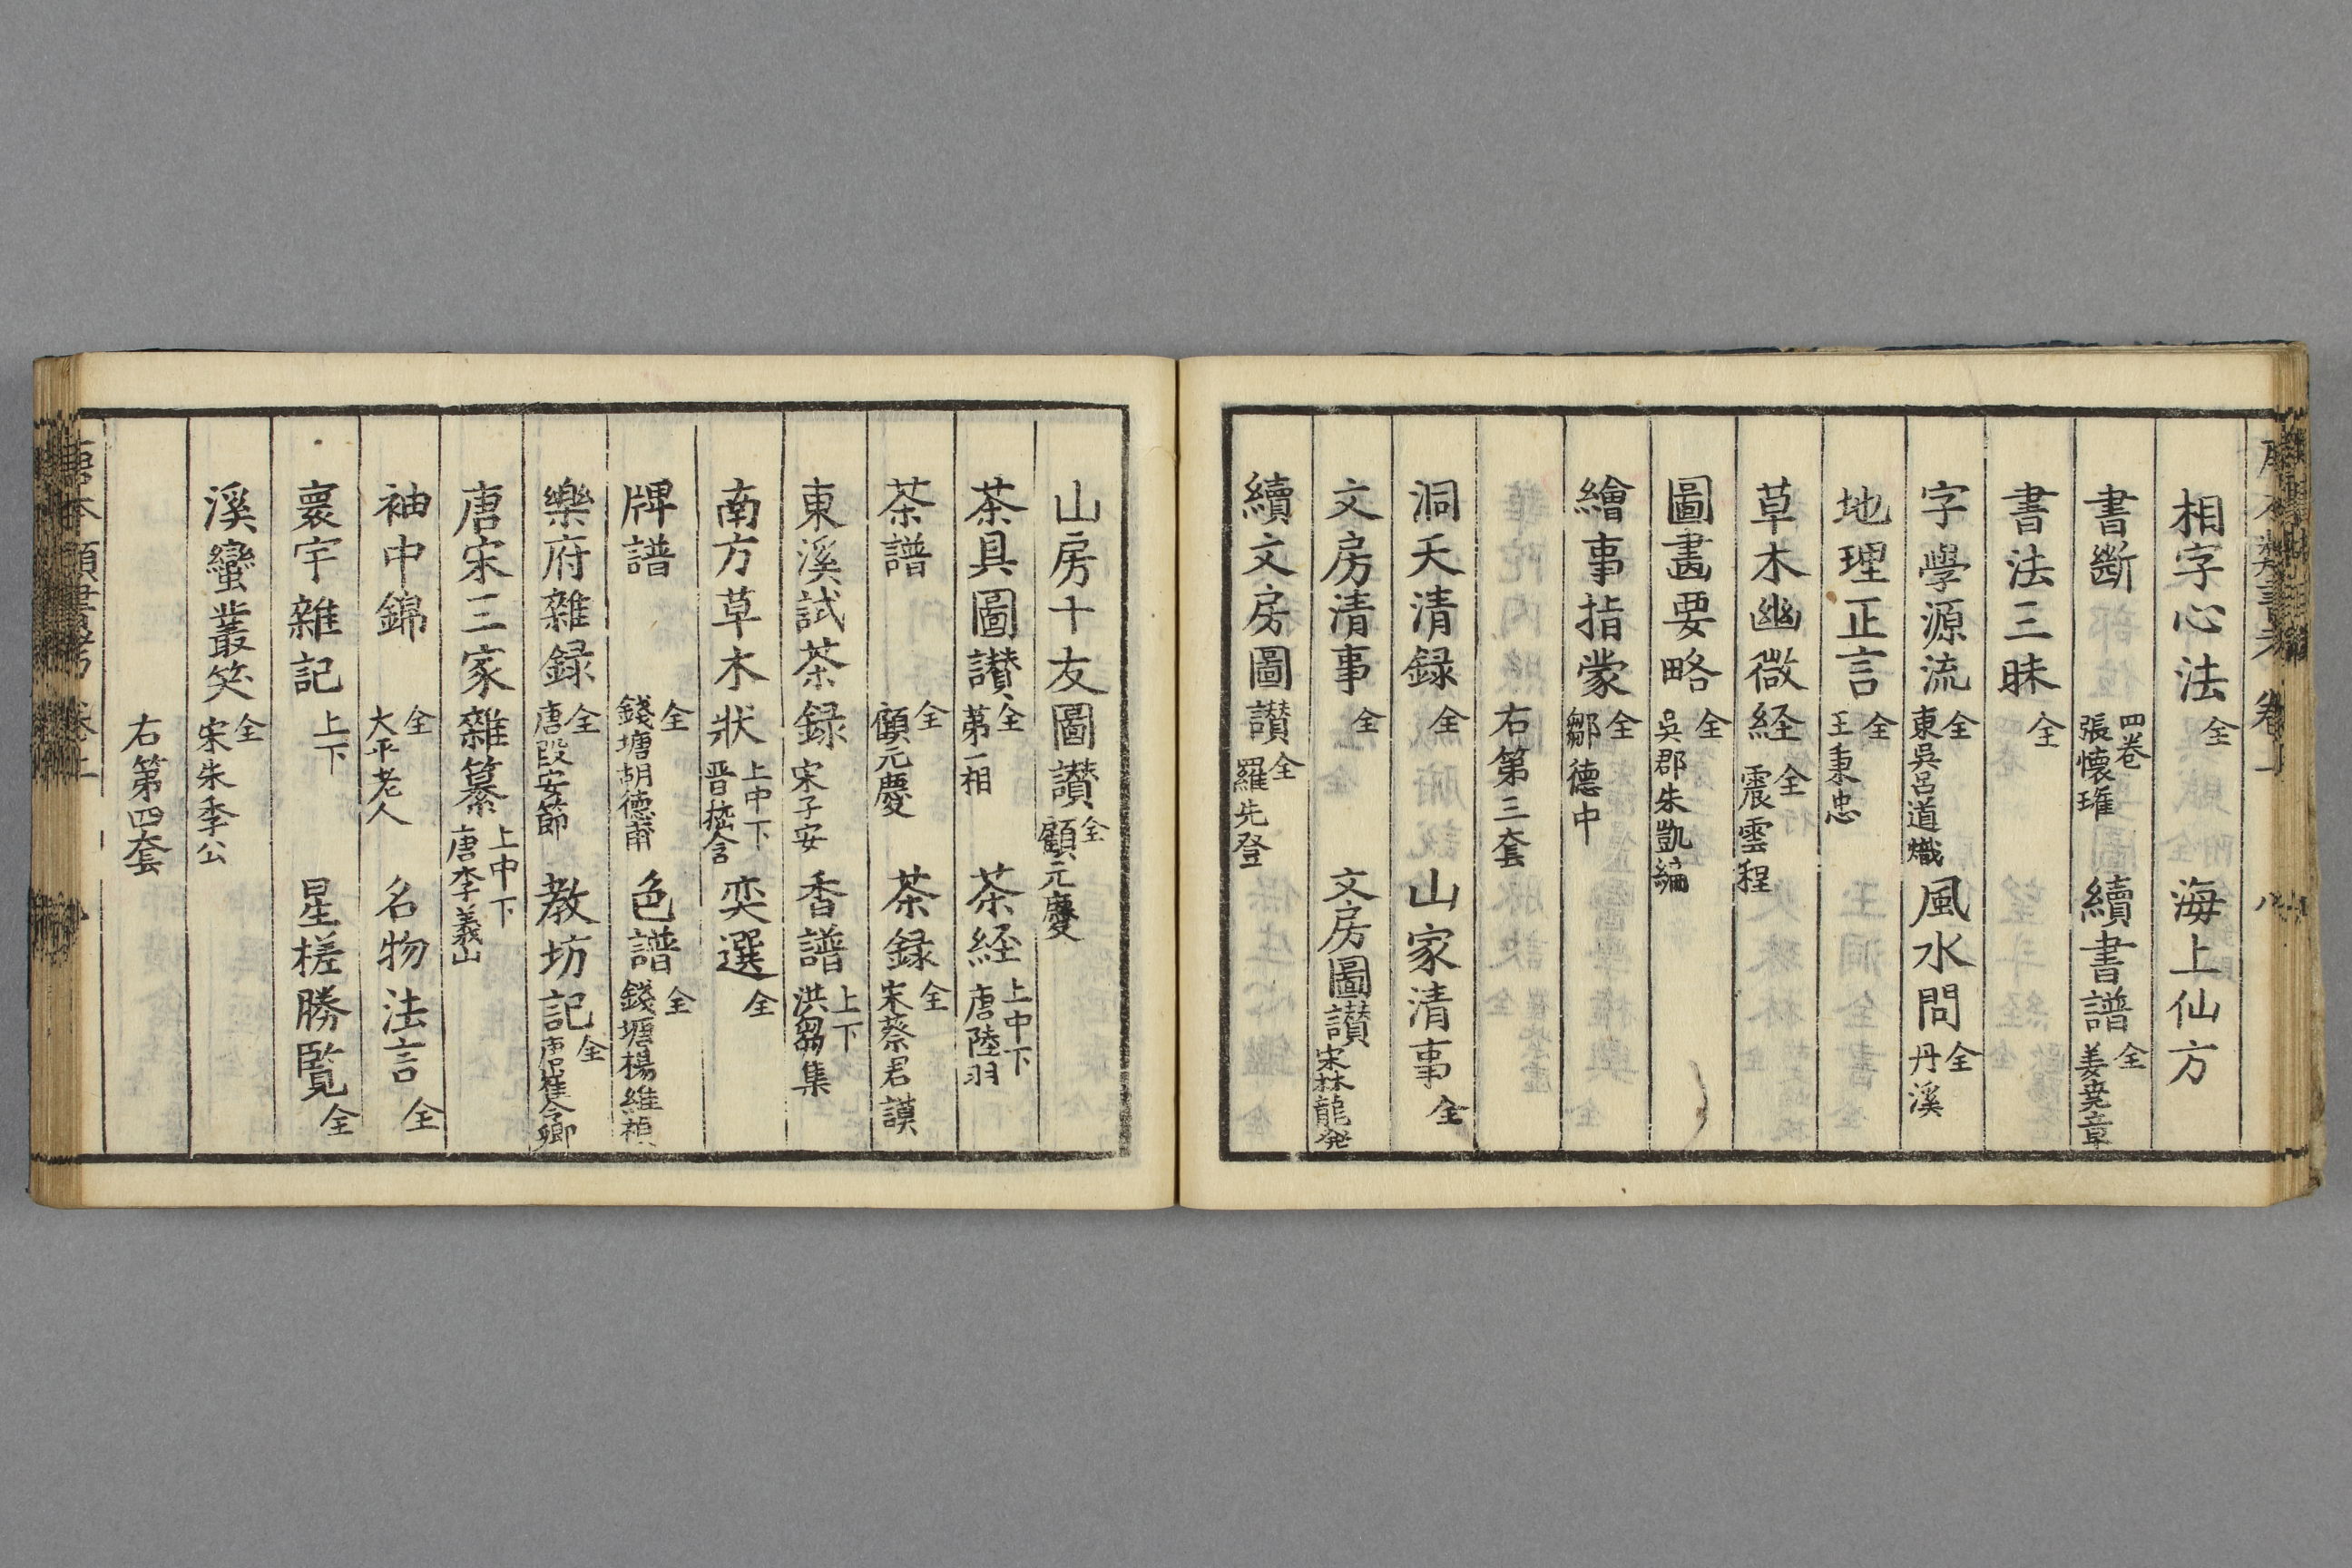 相字心法 全 海上仙方
書斷 四卷 張懐瓘 續書譜 全 姜尭章
書法三昧 全
字學源流 全 東吳呂道熾 風水問 全 丹溪
地理正言 全 王秉忠
草木幽微経 全 震雲程
圖畵要略 全 吳郡朱凱編
繪事指蒙 全 鄒德中
右第三套
洞天清録 全 山家清事 全
文房清事 全 文房圖讃 宋林龍発
續文房圖讃 全 羅先登
山房十友圖讃 全 顧元慶
茶具圖讃 全 第一相 茶経 上中下 唐陸羽
茶譜 全 顧元慶 茶録 全 宋蔡君謨
東溪試茶録 宋子安 香譜 上下 洪芻集
南方草木狀 上中下 晋嵇含 奕選 全
牌譜 全 錢塘胡德甫 色譜 全 錢塘楊維禎
樂府雜録 全 唐段安節 教坊記 全 唐崔令卿
唐宋三家雜纂 上中下 唐李義山
袖中錦 全 大平老人 名物法言 全
寰宇雜記 上下 星槎勝覧 全
溪蠻叢笑 全 宋朱季公
右第四套